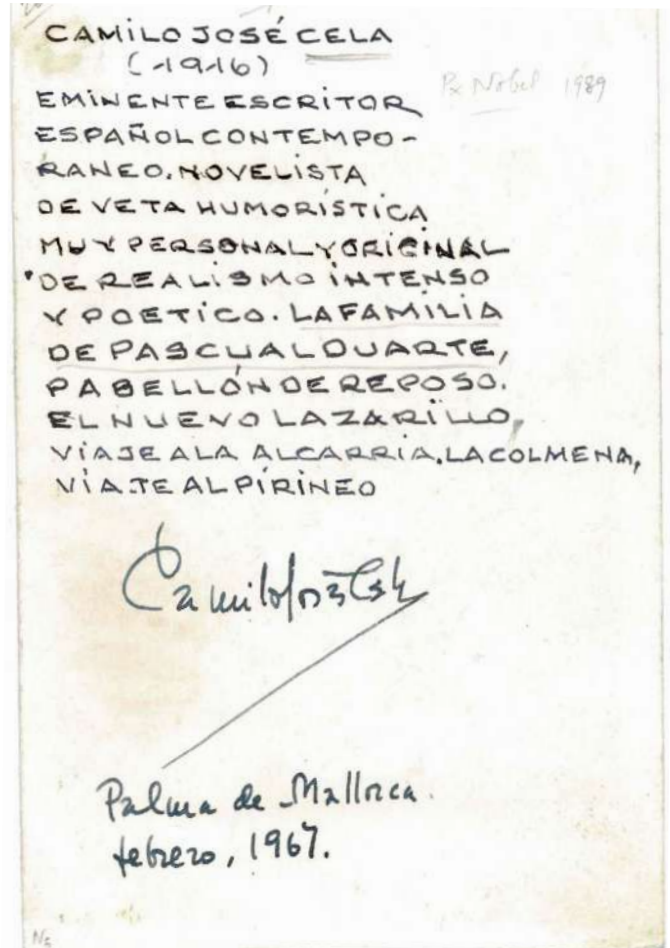 CAMILO JOSÉ CELA
(1916)
Pr Nobel 1989
EMINENTE ESCRITOR
ESPAÑOL CONTEMPO-
RANEO. NOVELISTA
DE VETA HUMORÍSTICA
MUY PERSONAL Y ORIGINAL
DE REALISMO INTENSO
Y POETICO. LA FAMILIA
DE PASCUAL DUARTE,
PABELLÓN DE REPOSO.
EL NUEVO LAZARILLO,
VIAJE A LA ALCARRIA. LA COLMENA,
VIAJE AL PIRINEO
Camilo José Cela
Palma de Mallorca.
febrero, 1967.